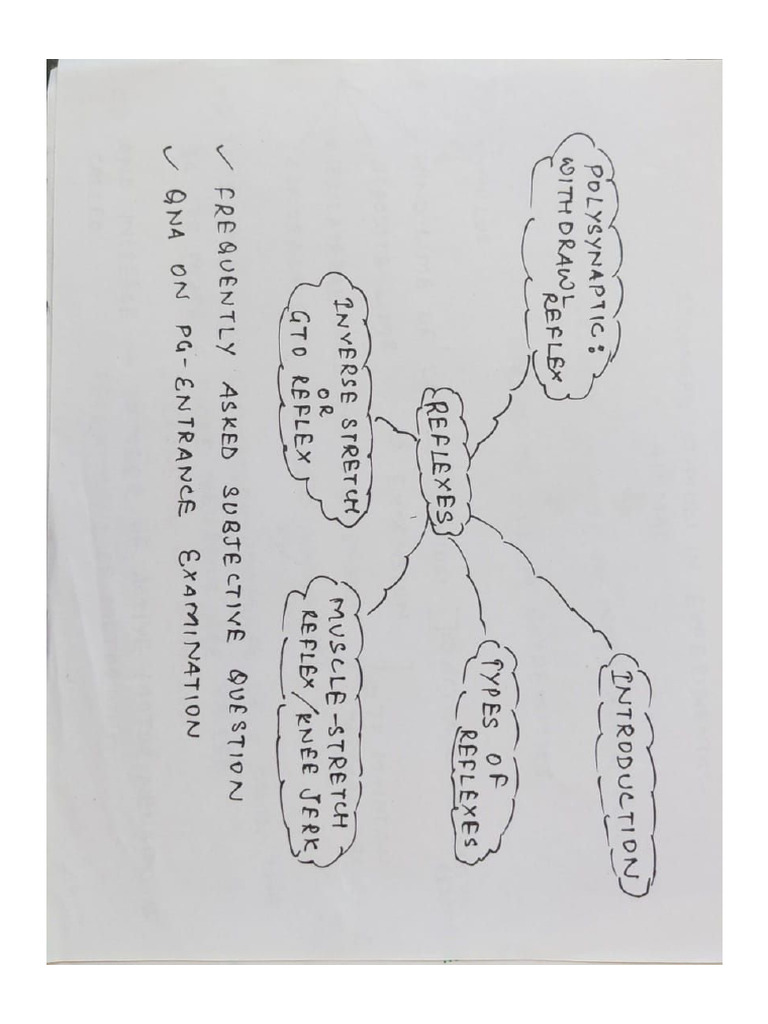 POLYSYNAPTIC:
WITHDRAWL
REFLEX
INTRODUCTION
REFLEXES
TYPES OF
REFLEXES
INVERSE STRETCH
OR
GTO REFLEX
MUSCLE-STRETCH
REFLEX/KNEE JERK
✓ FREQUENTLY ASKED SUBJECTIVE QUESTION
✓ QNA ON PG-ENTRANCE EXAMINATION